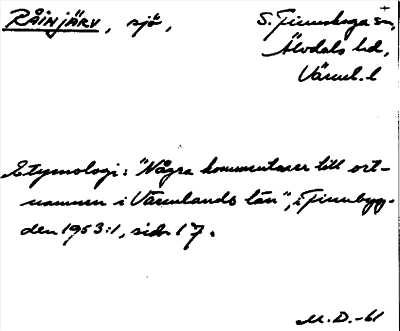 RÅINJÄRV, sjö, S. Finnskoga sn,
Älvdals hd,
Värml. l
Etymologi: "Några kommentarer till ort-
namnen i Värmlands län", i Finnbyg-
den 1953:1, sid. 17.
M.D.-61